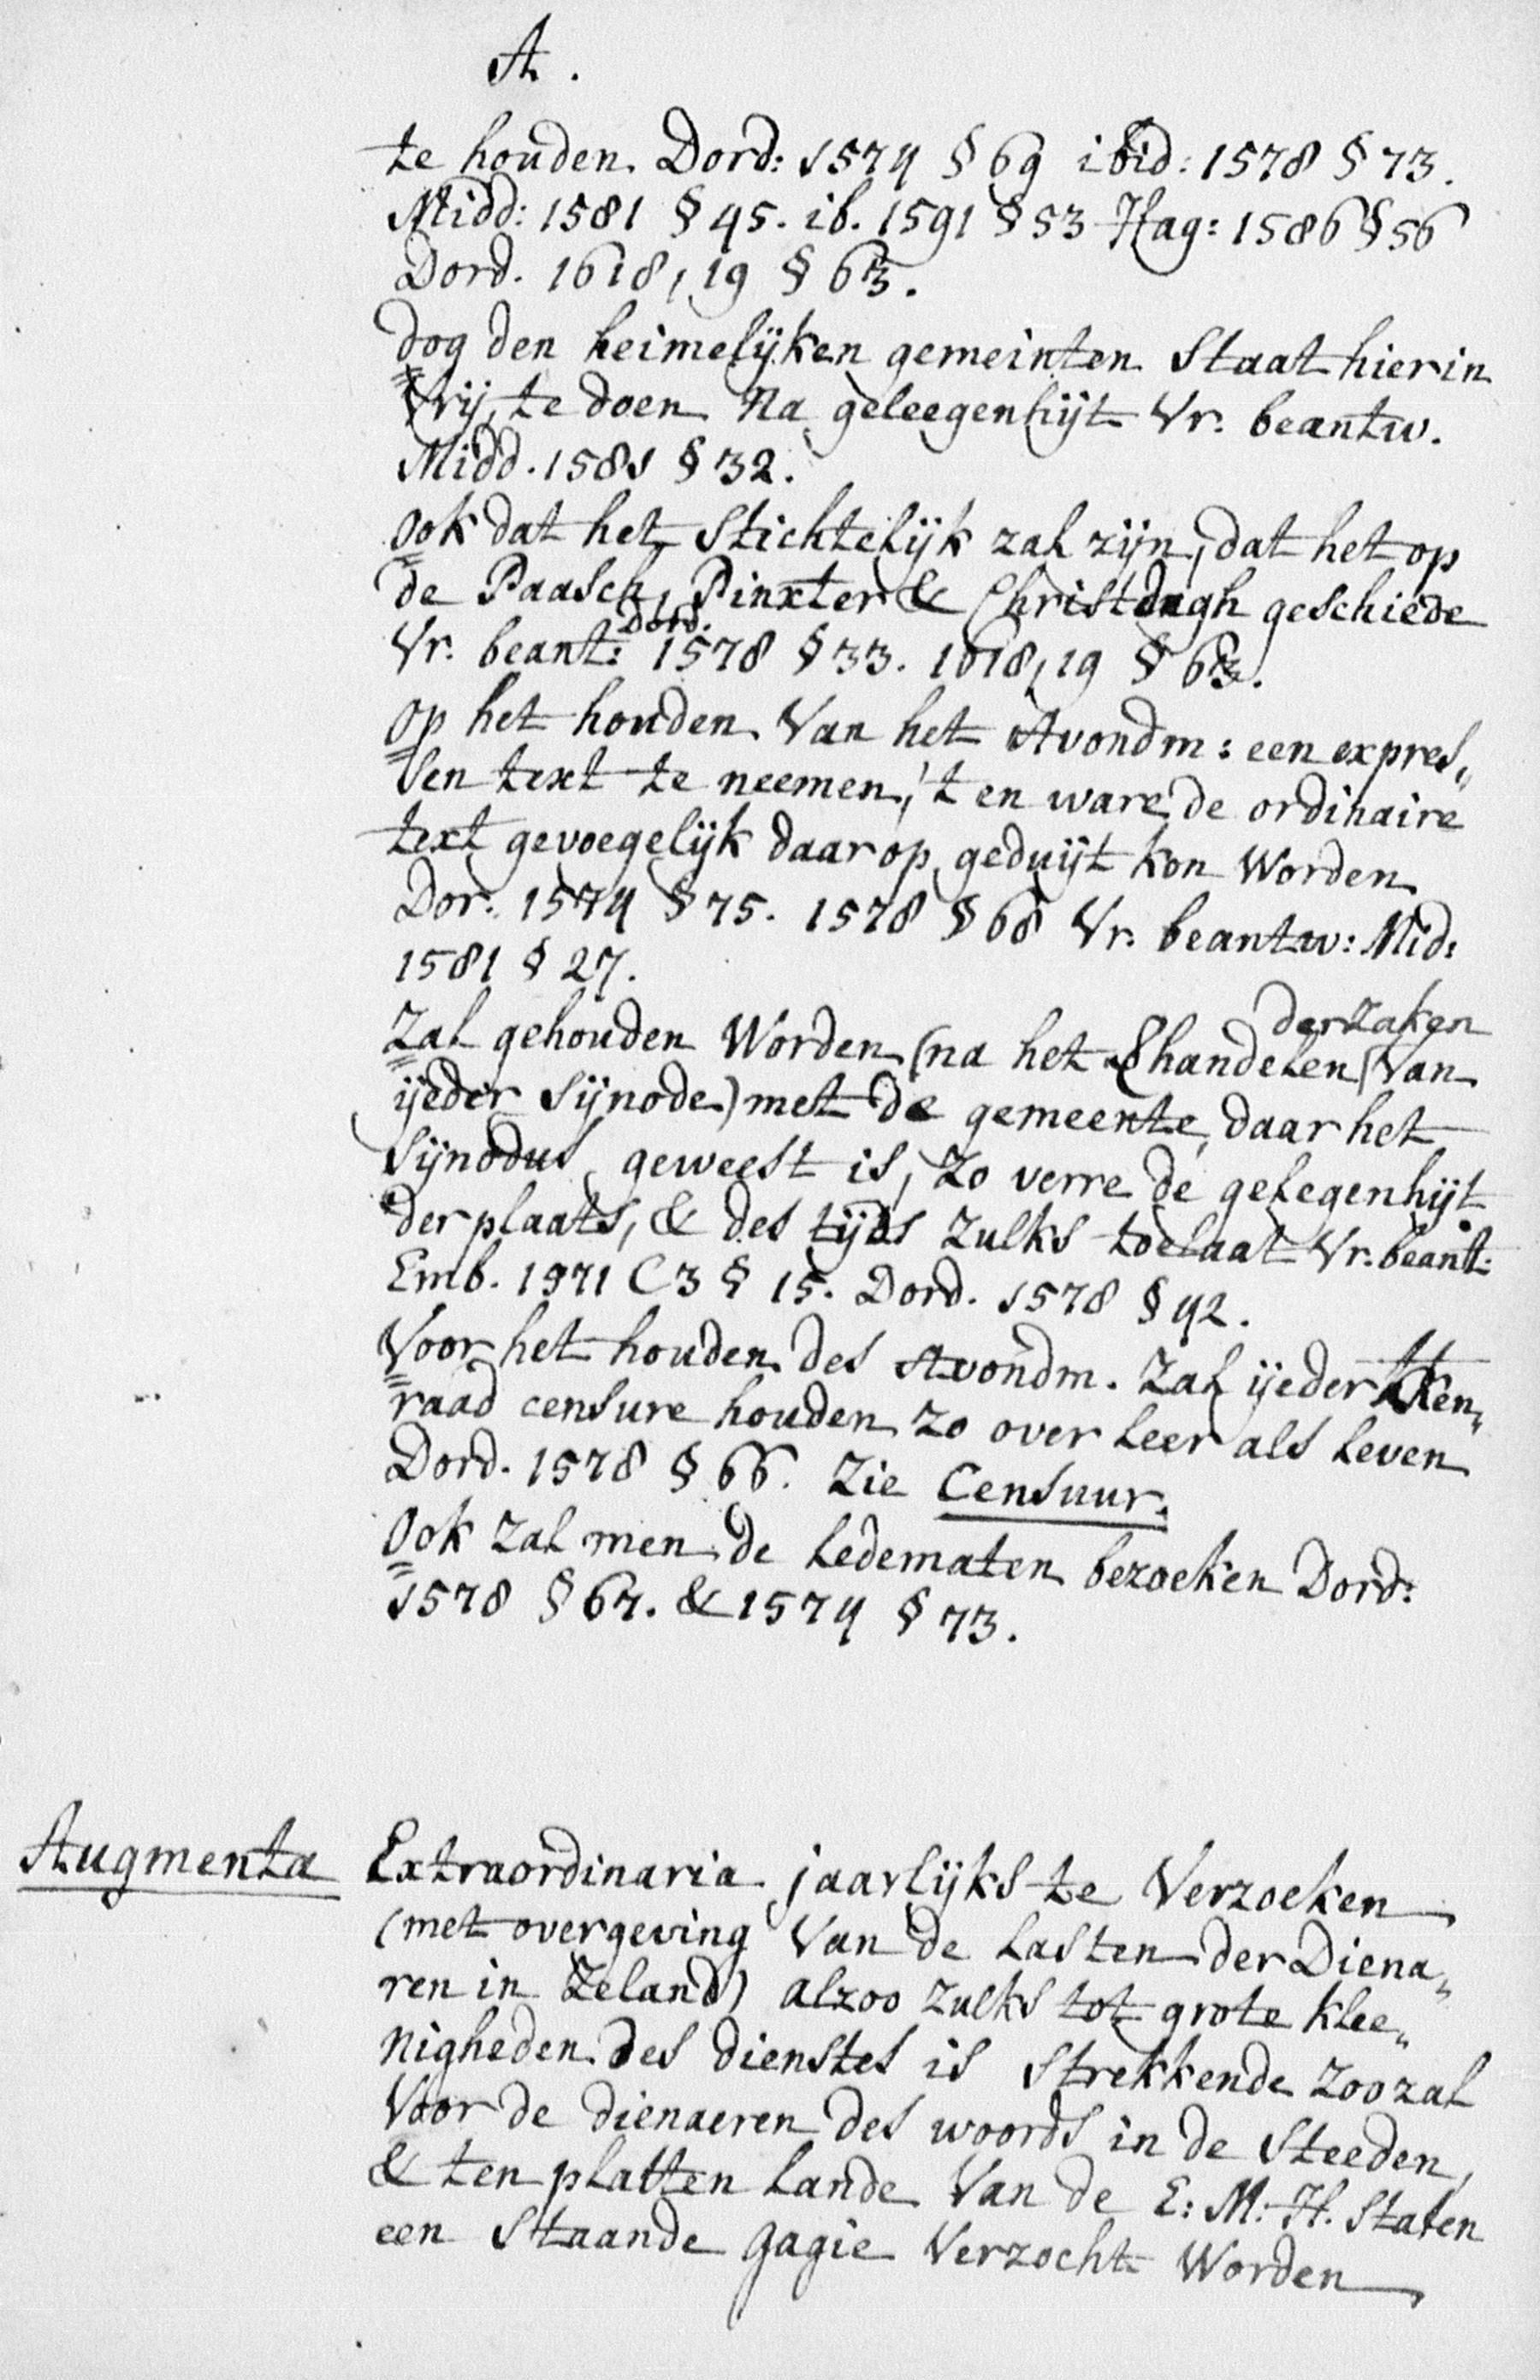 A.
te houden. Dord: 1574 § 69 ibid: 1578 § 73.
Midd: 1581 § 45. ib. 1591 § 53 Hag: 1586 § 56
Dord. 1618, 19 § 63.
dog den heimelijken gemeinten Staat hierin
vrij te doen na geleegenhijt Vr. beantw.
Midd. 1581 § 32.
Ook dat het Stichtelijk zal zijn, dat het op
de Paasch, Pinxter & Christdagh geschiede
Vr. beant: Dord. 1578 § 33. 1618, 19 § 63.
Op het houden Van het Avondm: een expres„
sen text te neemen, 't en ware de ordinaire
text gevoegelijk daar op geduijt kon Worden
Dor: 1574 § 75. 1578 § 68 Vr. beantw: Mid:
1581 § 27.
Zal gehouden Worden (na het handelen der zaken Van
ijeder Sijnode) met de gemeente, daar het
Sijnodus geweest is, Zo verre de gelegenhijt
der plaats, & des tijds Zulks toelaat Vr. beant:
Emb. 1571 C3 § 15. Dord. 1578 § 42.
Voor het houden des Avondm. Zal ijeder Ken„
raad censure houden zo over leer als leven
Dord. 1578 § 66. Zie Censuur.
Ook Zal men de Ledematen bezoeken Dord:
1578 § 67. & 1574 § 73.
Augmenta Extraordinaria jaarlijks te Verzoeken
(met overgeving Van de Lasten der Diena„
ren in Zeland) alzoo zulks tot grote klee„
nigheden des dienstes is Strekkende zoo zal
Voor de dienaeren des woords in de Steeden,
& ten platten Lande Van de E: M: H. Staten
een Staande gagie Verzocht Worden